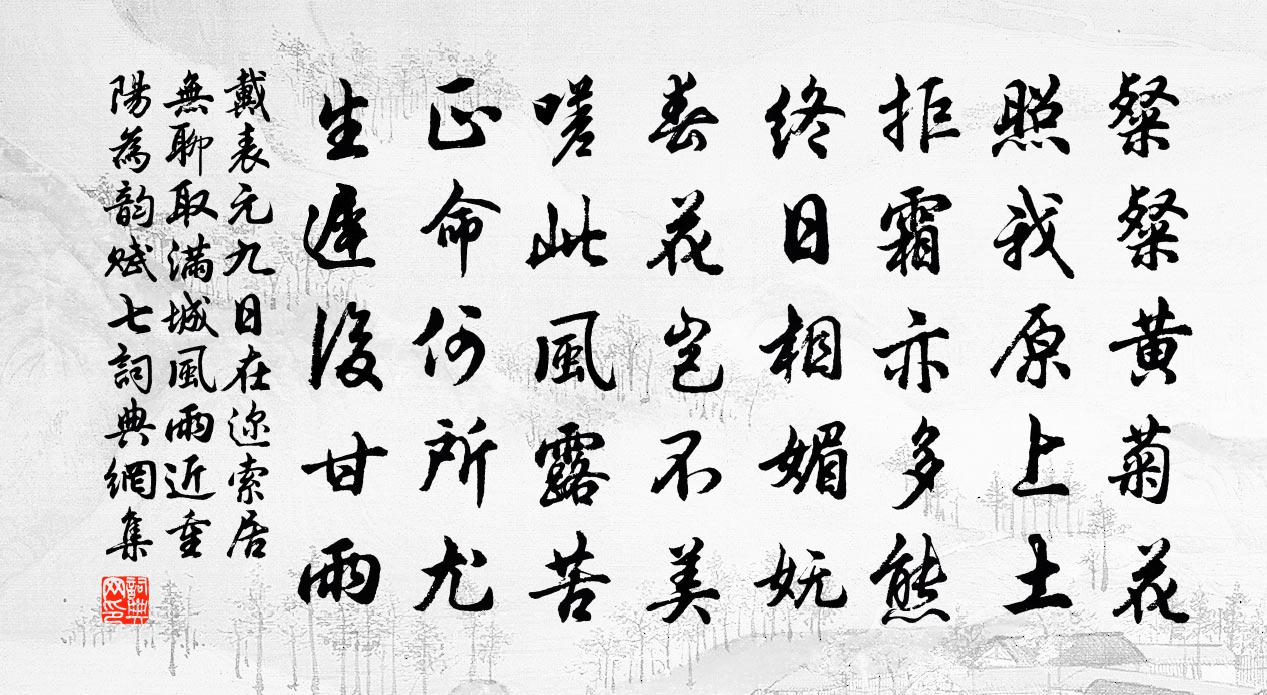 粲粲黄菊花
照我原上土
拒霜亦多態
終日相媚妩
春花岂不美
嗟此風露苦
正命何所尤
生遅後甘雨
戴表元九日在迩索居
無聊取满城風雨近重
陽為韵赋七詞典網集